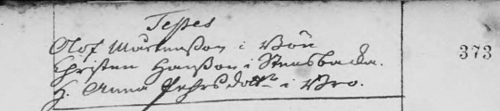 Testes
Olof Mårtensson i Bön
Christen Hansson i Stensbacka.
H. Anna Pehrsdottr i Bro.
373